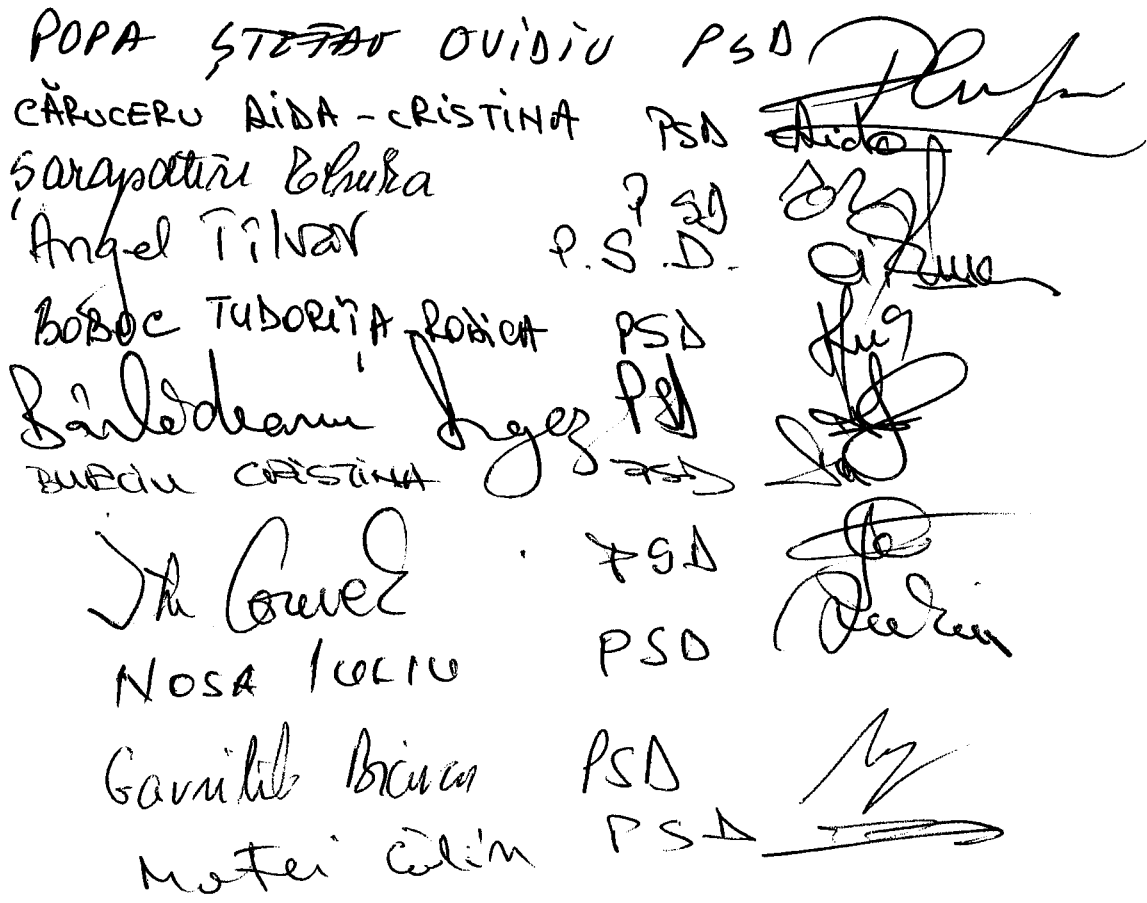 POPA ȘTEFAN OVIDIU PSD
CĂRUCERU AIDA-CRISTINA PSD Aida
Șarapatin Elvira PSD
Angel Tîlvăr P.S.D.
BOBOC TUDORIȚA-RODICA PSD
Bârlădeanu PSD
BURCIU CRISTINA PSD
Cornel PSD
NOSA IULIU PSD
Gavrilă Bianca PSD
Matei Călin PSD